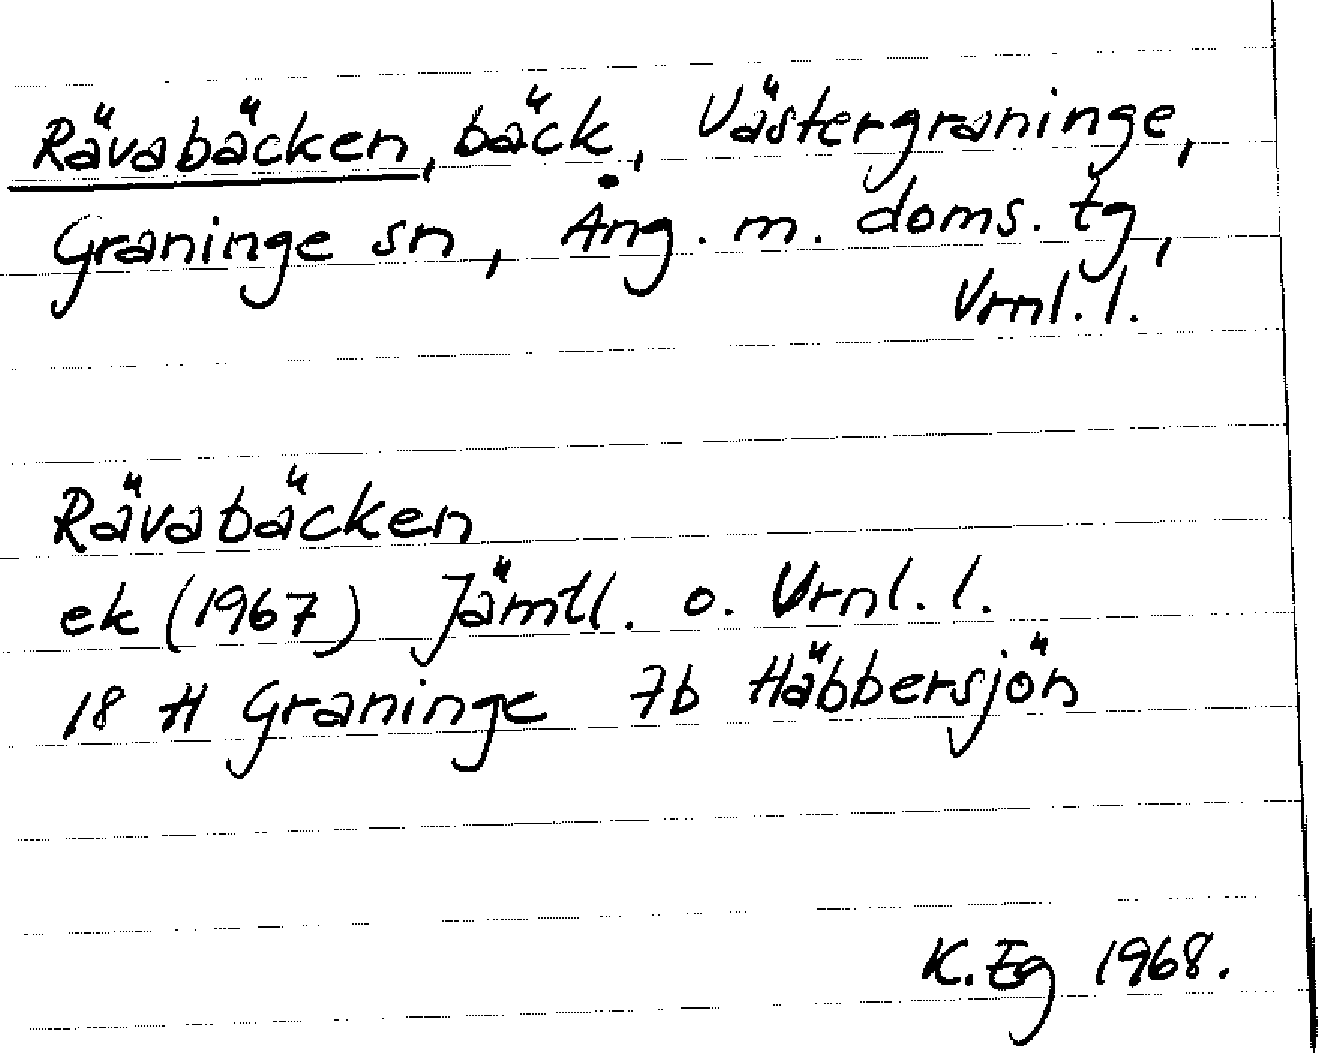 Rävabäcken, bäck, Västergraninge,
Graninge sn, Ång. m. doms. tg,
Vrnl. l.
Rävabäcken
ek (1967) Jämtl. o. Vrnl. l.
18 H Graninge 7b Häbbersjön
K. Eg 1968.